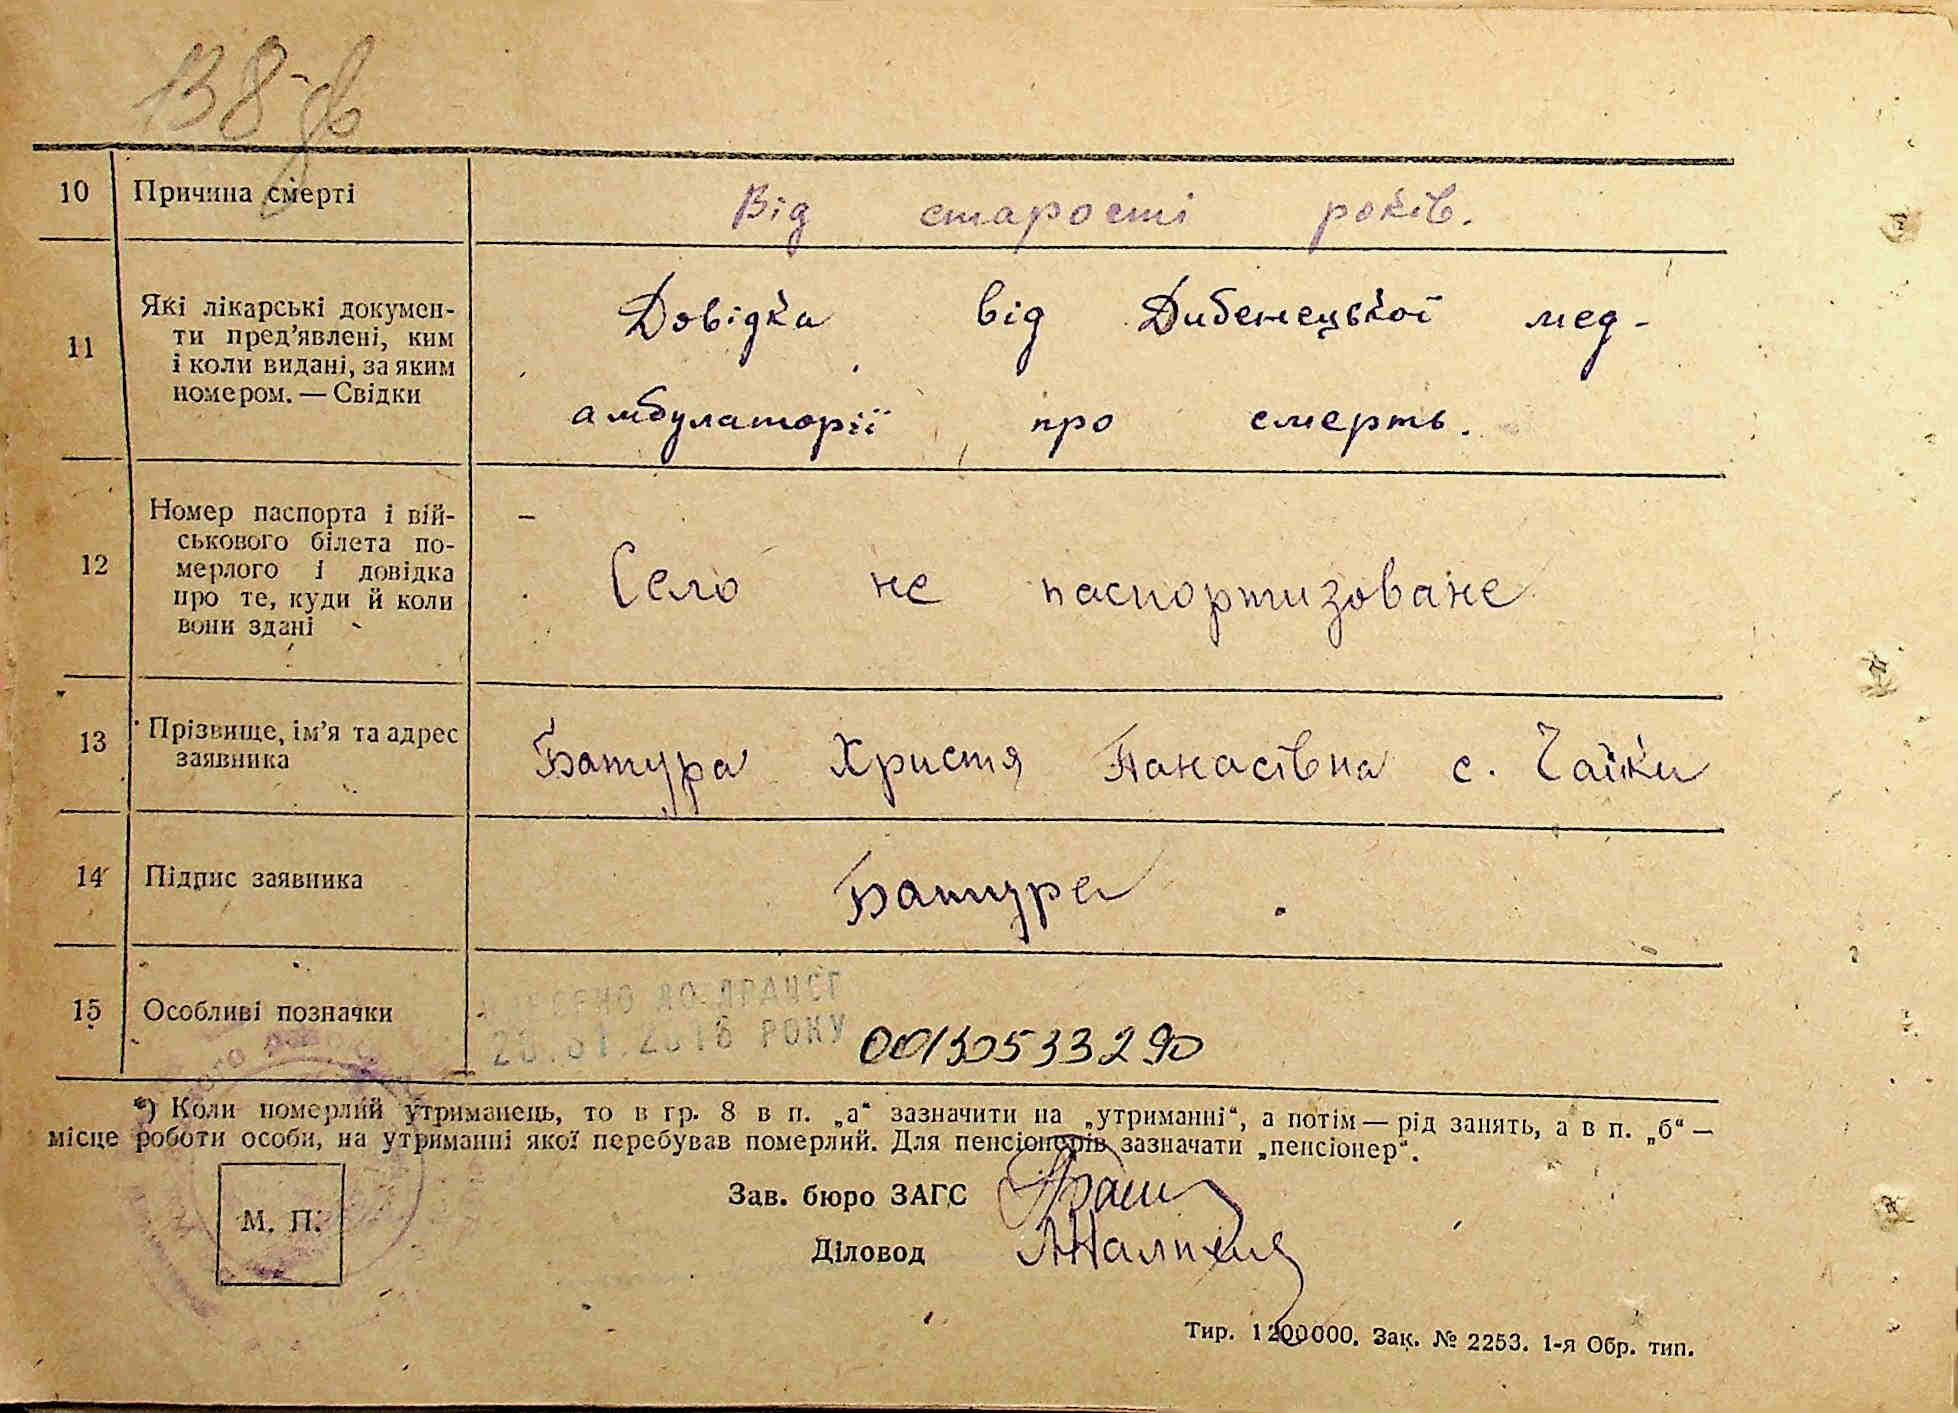 138
10 Причина смерті Від старості років.
11 Які лікарські докумен-
ти пред’явлені, ким
і коли видані, за яким
номером. — Свідки
Довідка від Дибенецької мед-
амбулаторії про смерть.
12 Номер паспорта і вій-
ськового білета по-
мерлого і довідка
про те, куди й коли
вони здані
Село не паспортизоване
13 Прізвище, ім’я та адрес
заявника
Батура Христя Панасівна с. Чайки
14 Підпис заявника Батура
15 Особливі позначки
ДО ДРАЦСГ
РОКУ 00130533290
*) Коли померлий утриманець, то в гр. 8 в п. „а“ зазначити на „утриманні“, а потім — рід занять, а в п. „б“ —
місце роботи особи, на утриманні якої перебував померлий. Для пенсіонерів зазначати „пенсіонер“.
М. П.
Зав. бюро ЗАГС
Діловод
Тир. 1200000. Зак. № 2253. 1-я Обр. тип.